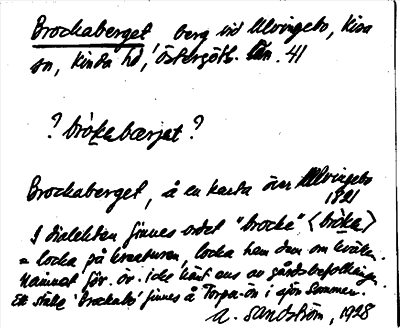 Brockaberget, berg vid Ulvingebo, Kisa
sn, Kinda hd, Östergötl. län. 41
? bròkabærjat ?
Brockaberget, å en karta över Ulvingebo
1821
I dialekten finnes ordet "brocke" <bròka>
= locka på kreaturen, locka hem dem om kvällen.
Namnet för. öv. icke känt ens av gårdsbefolkningen.
Ett ställe "Brockabo" finnes å Torpa-ön i sjön Sommen.
A. Sandström, 1928